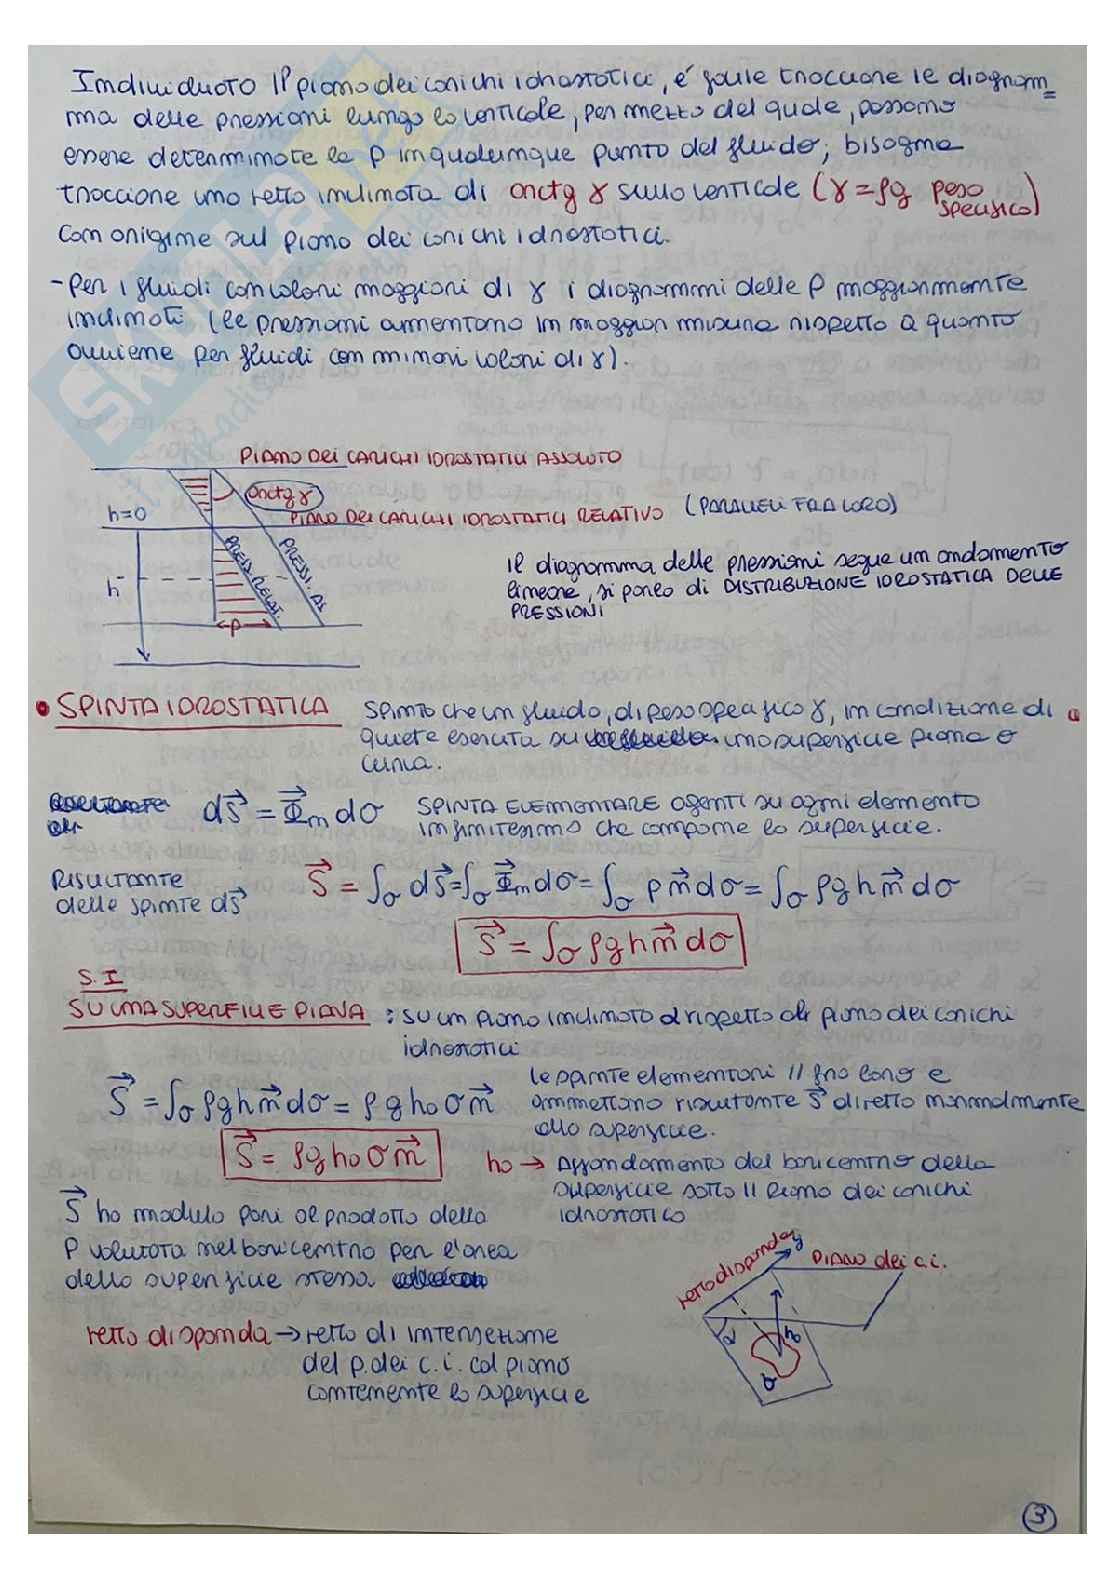 Individuato il piano dei carichi idrostatici, é facile tracciare le diagram=
ma delle pressioni lungo la verticale, per mezzo del quale, possono
essere determinate le p in qualunque punto del fluido; bisogna
tracciare una retta inclinata di arctg γ sulla verticale (γ = ρg peso specifico)
con origine sul piano dei carichi idrostatici.
- Per i fluidi con valori maggiori di γ i diagrammi delle p maggiormente
inclinati (le pressioni aumentano in maggior misura rispetto a quanto
avviene per fluidi con minori valori di γ).
PIANO DEI CARICHI IDROSTATICI ASSOLUTO
arctg γ
h=0
PIANO DEI CARICHI IDROSTATICI RELATIVO (PARALLELI FRA LORO)
PRESS. RELAT.
PRESS. AS
h
p
il diagramma delle pressioni segue un andamento
lineare, si parla di DISTRIBUZIONE IDROSTATICA DELLE
PRESSIONI
• SPINTA IDROSTATICA Spinta che un fluido, di peso specifico γ, in condizione di
quiete esercita su una superficie piana o
curva.
dS⃗ = Φ⃗n dσ SPINTA ELEMENTARE agenti su ogni elemento
infinitesimo che compone la superficie.
RISULTANTE
delle spinte dS⃗
S⃗ = ∫σ dS⃗ = ∫σ Φ⃗n dσ = ∫σ p n⃗ dσ = ∫σ ρg h n⃗ dσ
S⃗ = ∫σ ρg h n⃗ dσ
S.I
SU UNA SUPERFICIE PIANA : su un piano inclinato α rispetto al piano dei carichi
idrostatici
S⃗ = ∫σ ρg h n⃗ dσ = ρ g h₀ σ n⃗
le spinte elementari // fra loro e
ammettono risultante S⃗ diretta normalmente
alla superficie.
S⃗ = ρg h₀ σ n⃗
h₀ → Affondamento del baricentro della
superficie sotto il piano dei carichi
idrostatico
S⃗ ha modulo pari al prodotto della
p valutata nel baricentro per l'area
della superficie stessa
retta di sponda y
PIANO dei c.i.
α
h₀
σ
retta di sponda → retta di intersezione
del p. dei c.i. col piano
contenente la superficie
3